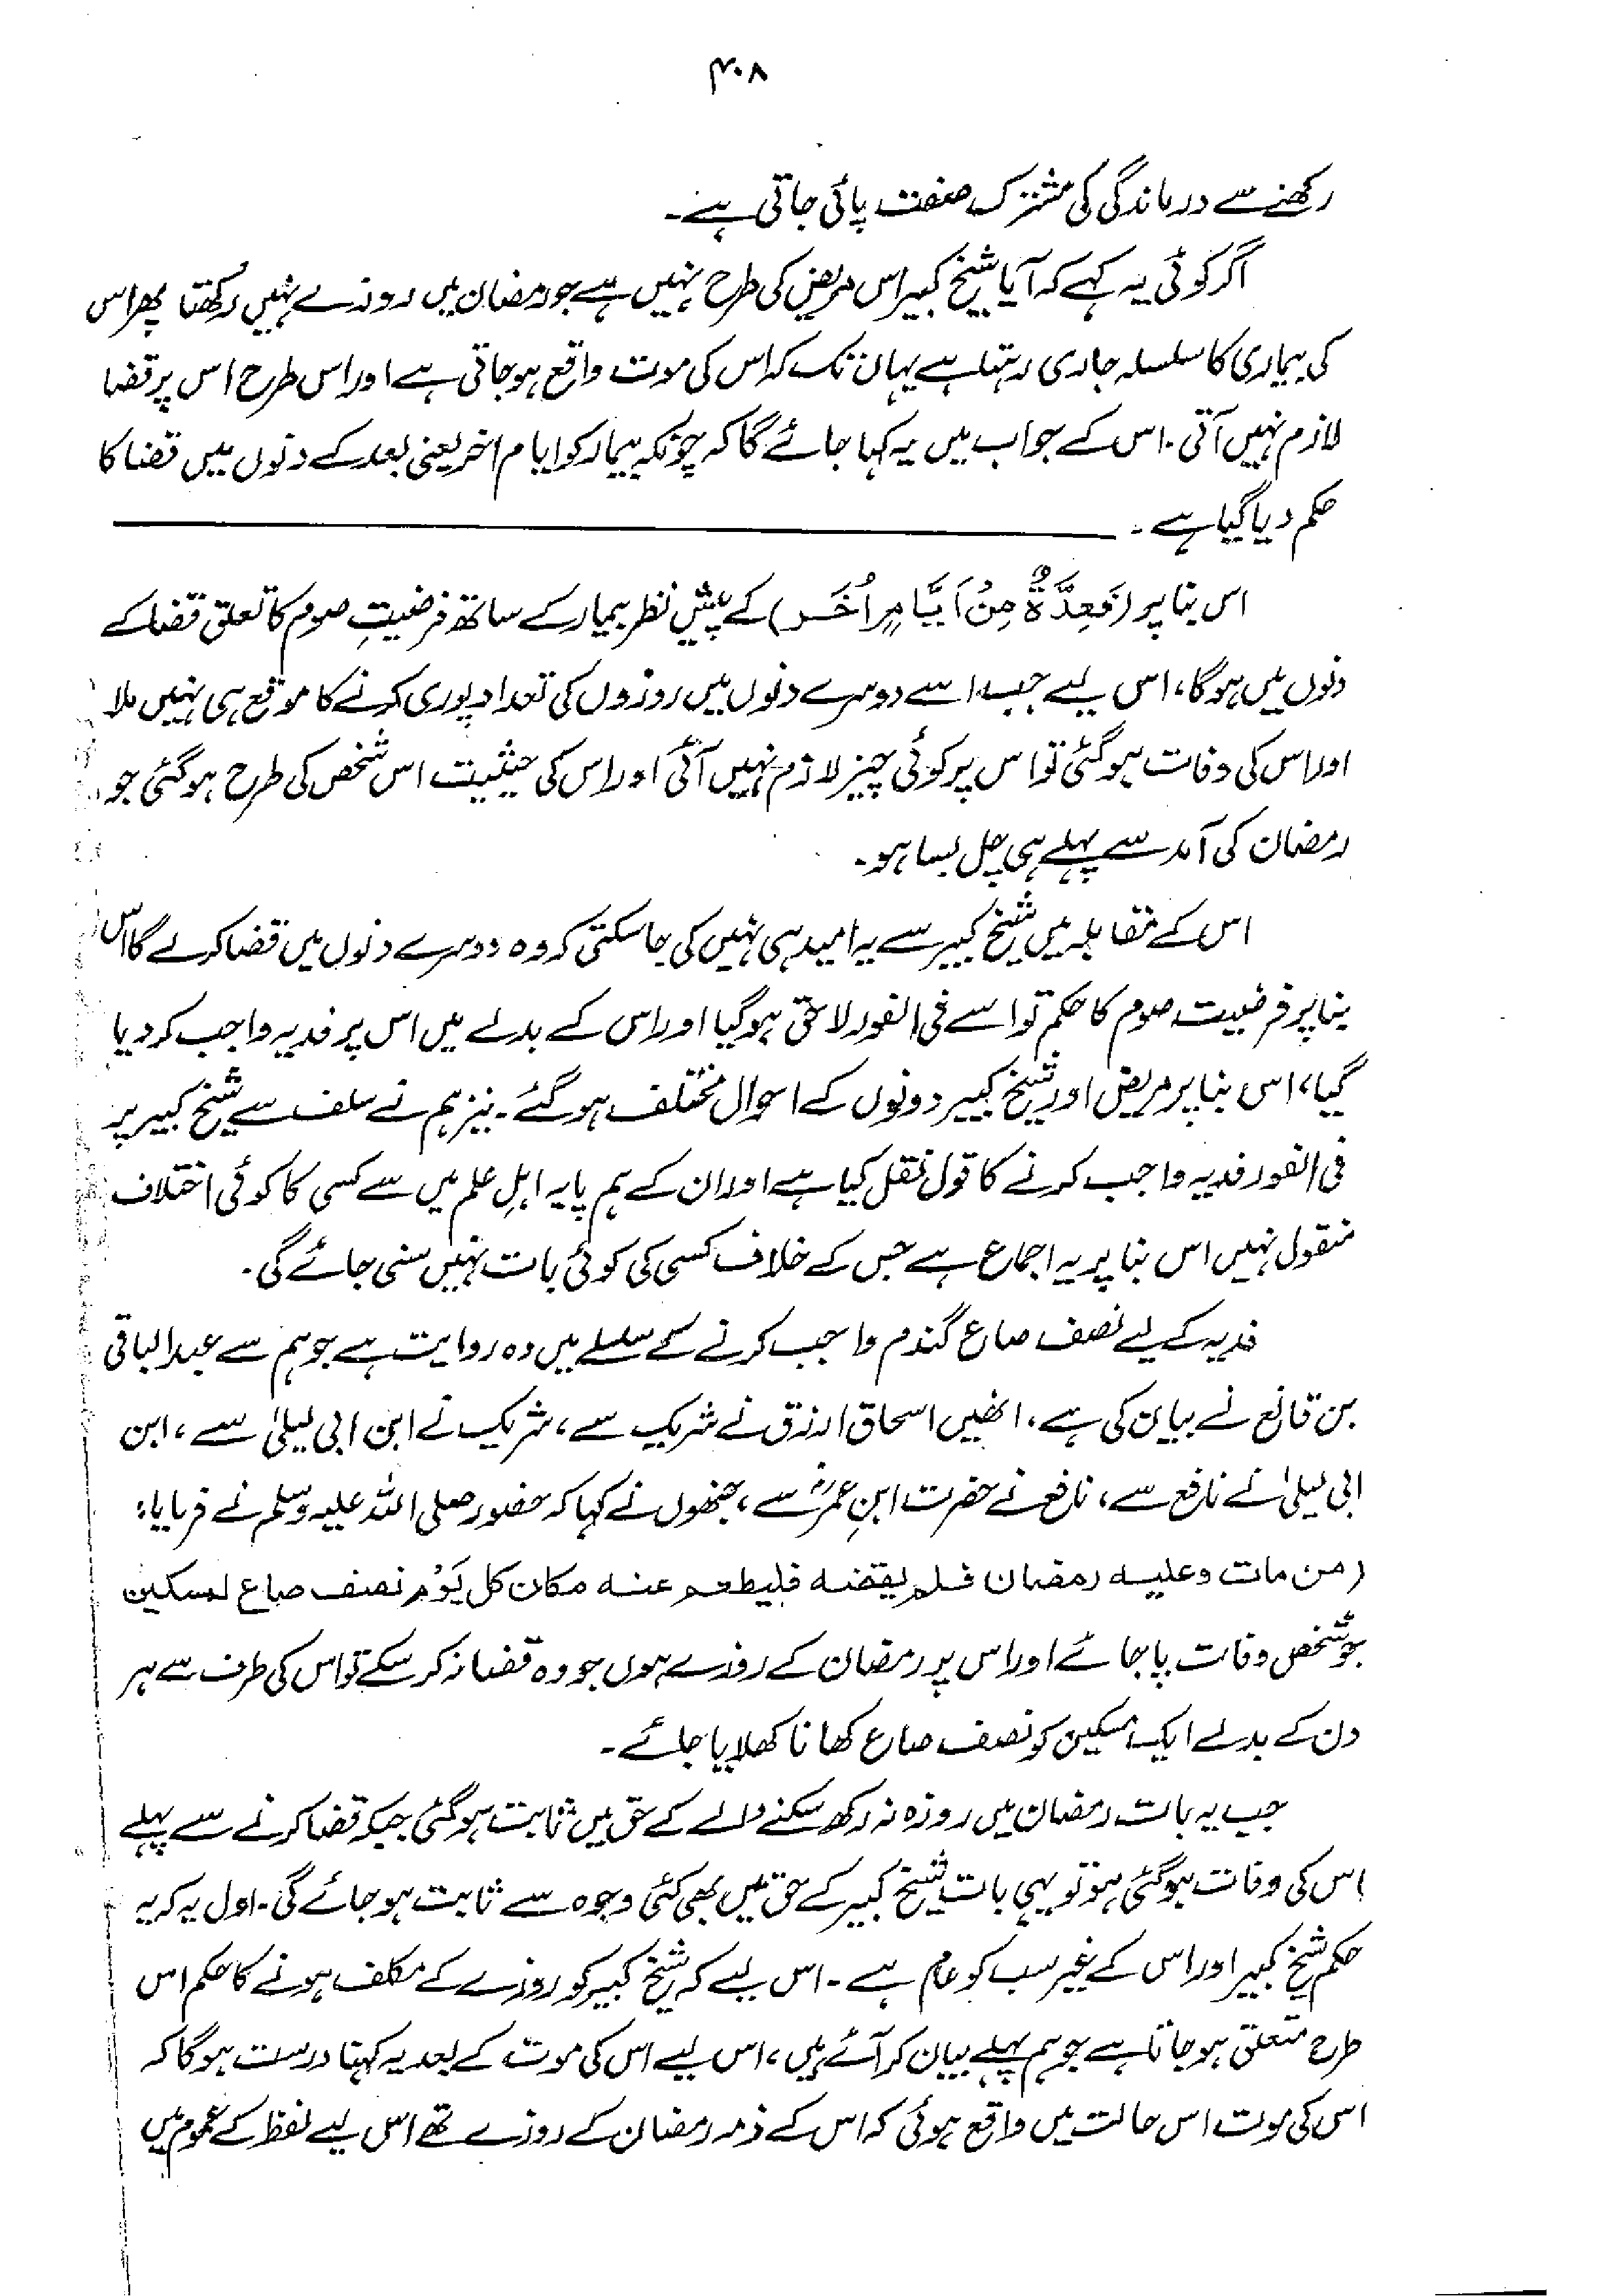 ۴۰۸
رکھنے سے درماندگی کی مشترک صفت پائی جاتی ہے۔
اگر کوئی یہ کہے کہ آیا شیخ کبیر اس مریض کی طرح نہیں ہے جو رمضان میں روزے نہیں رکھتا پھر اس
کی بیماری کا سلسلہ جاری رہتا ہے یہاں تک کہ اس کی موت واقع ہو جاتی ہے اور اس طرح اس پر قضا
لازم نہیں آتی۔ اس کے جواب میں یہ کہا جائے گا کہ چونکہ بیمار کو ایام اخر یعنی بعد کے دنوں میں قضا کا
حکم دیا گیا ہے۔
اس بنا پر (فَعِدَّةٌ مِنْ اَيَّامٍ اُخَر) کے پیش نظر بیمار کے ساتھ فرضیتِ صوم کا تعلق قضا کے
دنوں میں ہو گا، اس لیے جب اسے دوسرے دنوں میں روزوں کی تعداد پوری کرنے کا موقع ہی نہیں ملا
اور اس کی وفات ہو گئی تو اس پر کوئی چیز لازم نہیں آئی اور اس کی حیثیت اس شخص کی طرح ہو گئی جو
رمضان کی آمد سے پہلے ہی چل بسا ہو۔
اس کے مقابلہ میں شیخ کبیر سے یہ امید ہی نہیں کی جا سکتی کہ وہ دوسرے دنوں میں قضا کر لے گا اس
بنا پر فرضیت صوم کا حکم تو اسے فی الفور لاحق ہو گیا اور اس کے بدلے میں اس پر فدیہ واجب کر دیا
گیا، اس بنا پر مریض اور شیخ کبیر دونوں کے احوال مختلف ہو گئے۔ نیز ہم نے سلف سے شیخ کبیر پر
فی الفور فدیہ واجب کرنے کا قول نقل کیا ہے اور ان کے ہم پایہ اہلِ علم میں سے کسی کا کوئی اختلاف
منقول نہیں اس بنا پر یہ اجماع ہے جس کے خلاف کسی کی کوئی بات نہیں سنی جائے گی۔
فدیہ کے لیے نصف صاع گندم واجب کرنے کے سلسلے میں وہ روایت ہے جو ہم سے عبدالباقی
بن قانع نے بیان کی ہے، انھیں اسحاق ازرق نے شریک سے، شریک نے ابن ابی لیلیٰ سے، ابن
ابی لیلیٰ نے نافع سے، نافع نے حضرت ابنِ عمرؓ سے، جنھوں نے کہا کہ حضور صلی اللہ علیہ وسلم نے فرمایا:
(من مات وعلیہ رمضان فلم یقضہ فلیطعم عنہ مکان کل یَوْم نصف صاع لمسکین
جو شخص وفات پا جائے اور اس پر رمضان کے روزے ہوں جو وہ قضا نہ کر سکے تو اس کی طرف سے ہر
دن کے بدلے ایک مسکین کو نصف صاع کھانا کھلایا جائے۔
جب یہ بات رمضان میں روزہ نہ رکھ سکنے والے کے حق میں ثابت ہو گئی جبکہ قضا کرنے سے پہلے
اس کی وفات ہو گئی ہو تو یہی بات شیخ کبیر کے حق میں بھی کئی وجوہ سے ثابت ہو جائے گی۔ اول یہ کہ یہ
حکم شیخ کبیر اور اس کے غیر سب کو عام ہے۔ اس لیے کہ شیخ کبیر کو روزے کے مکلف ہونے کا حکم اس
طرح متعلق ہو جاتا ہے جو ہم پہلے بیان کر آئے ہیں، اس لیے اس کی موت کے بعد یہ کہنا درست ہو گا کہ
اس کی موت اس حالت میں واقع ہوئی کہ اس کے ذمہ رمضان کے روزے تھے اس لیے لفظ کے عموم میں